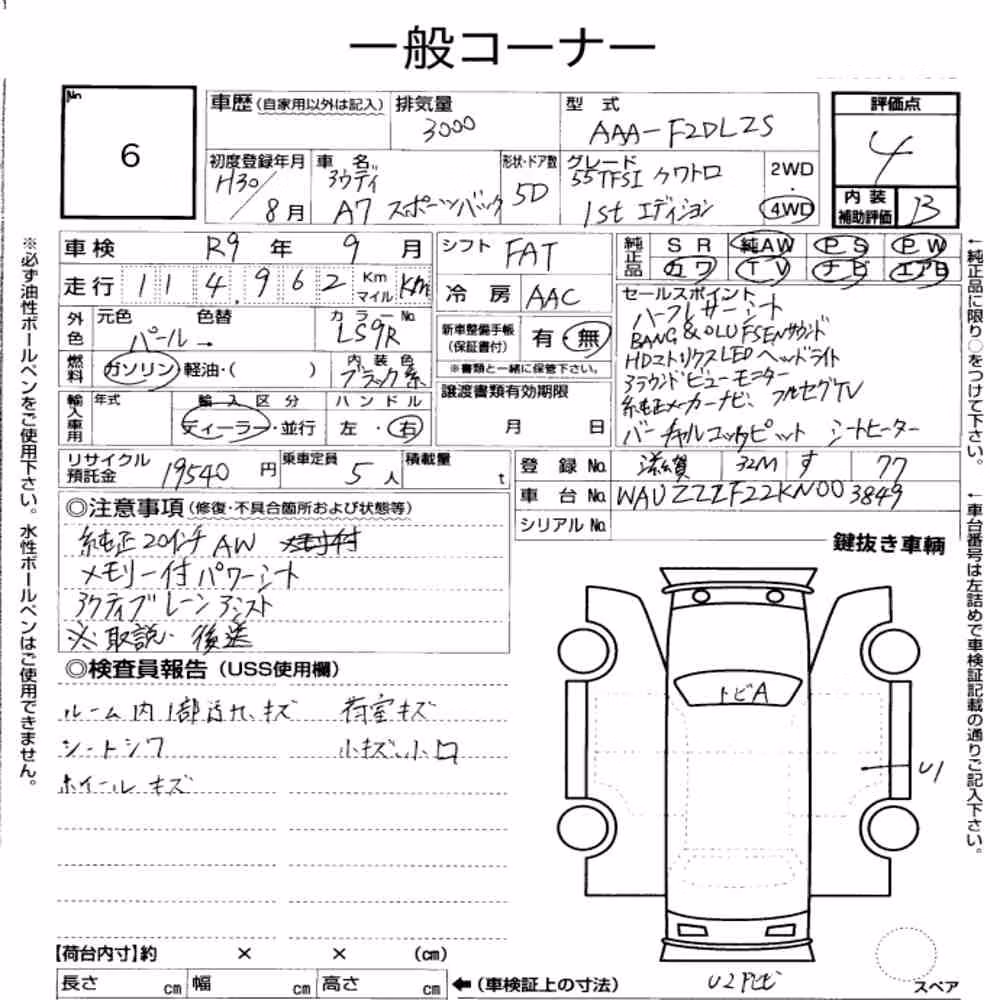 一般コーナー
No. 6
車歴(自家用以外は記入) 排気量 3000 型式 AAA-F2DLZS 評価点 4
初度登録年月 H30/8月 車名 アウディ A7 スポーツバック 形状・ドア数 5D グレード 55TFSI クワトロ 1st エディション 2WD・4WD 内装補助評価 B
車検 R9年 9月 シフト FAT 純正品 SR 純AW PS PW
走行 114,962 Km マイル Km 冷房 AAC カワ TV ナビ エアB
外色 元色 パール→ 色替 カラーNo. LS9R 新車整備手帳(保証書付) 有・無
※書類と一緒に保管下さい。
燃料 ガソリン・軽油・( ) 内装色 ブラック系 譲渡書類有効期限 月 日
輸入車用 年式 輸入区分 ディーラー・並行 ハンドル 左・右
セールスポイント
ハーフレザーシート
BANG & OLUFSENサウンド
HDマトリクスLEDヘッドライト
アラウンドビューモニター
純正メーカーナビ、フルセグTV
バーチャルコックピット シートヒーター
リサイクル預託金 19540円 乗車定員 5人 積載量 t 登録No. 滋賀 32M す 77
車台No. WAUZZZF22KN003849
シリアルNo.
◎注意事項(修復・不具合箇所および状態等)
純正20インチAW
メモリー付パワーシート
アクティブレーンアシスト
※取説、後送
鍵抜き車輌
◎検査員報告(USS使用欄)
ルーム内1部汚れ、キズ 荷室キズ
シートシワ 小キズ、小凹
ホイールキズ
トビA
U1
【荷台内寸】約 × × (cm)
長さ cm 幅 cm 高さ cm ←(車検証上の寸法) スペア
※必ず油性ボールペンをご使用下さい。水性ボールペンはご使用できません。
←純正品に限り○をつけて下さい。
←車台番号は左詰めで車検証記載の通りご記入下さい。